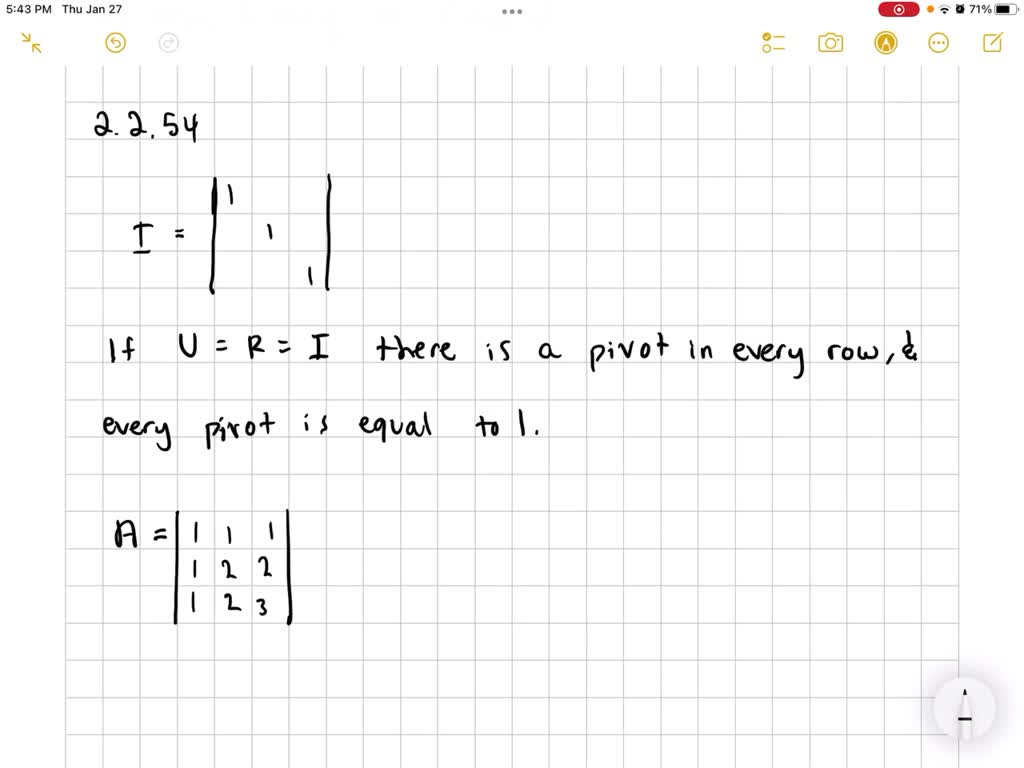 5:43 PM Thu Jan 27
71%
2.2.54
I = | 1
1
1 |
If U = R = I there is a pivot in every row, &
every pivot is equal to 1.
A = | 1 1 1 |
| 1 2 2 |
| 1 2 3 |